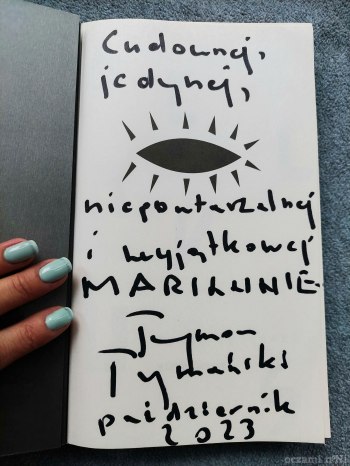 Cudownej,
jedynej,
niepowtarzalnej
i wyjątkowej
MARILINIE
Tymon
Tymański
październik
2023